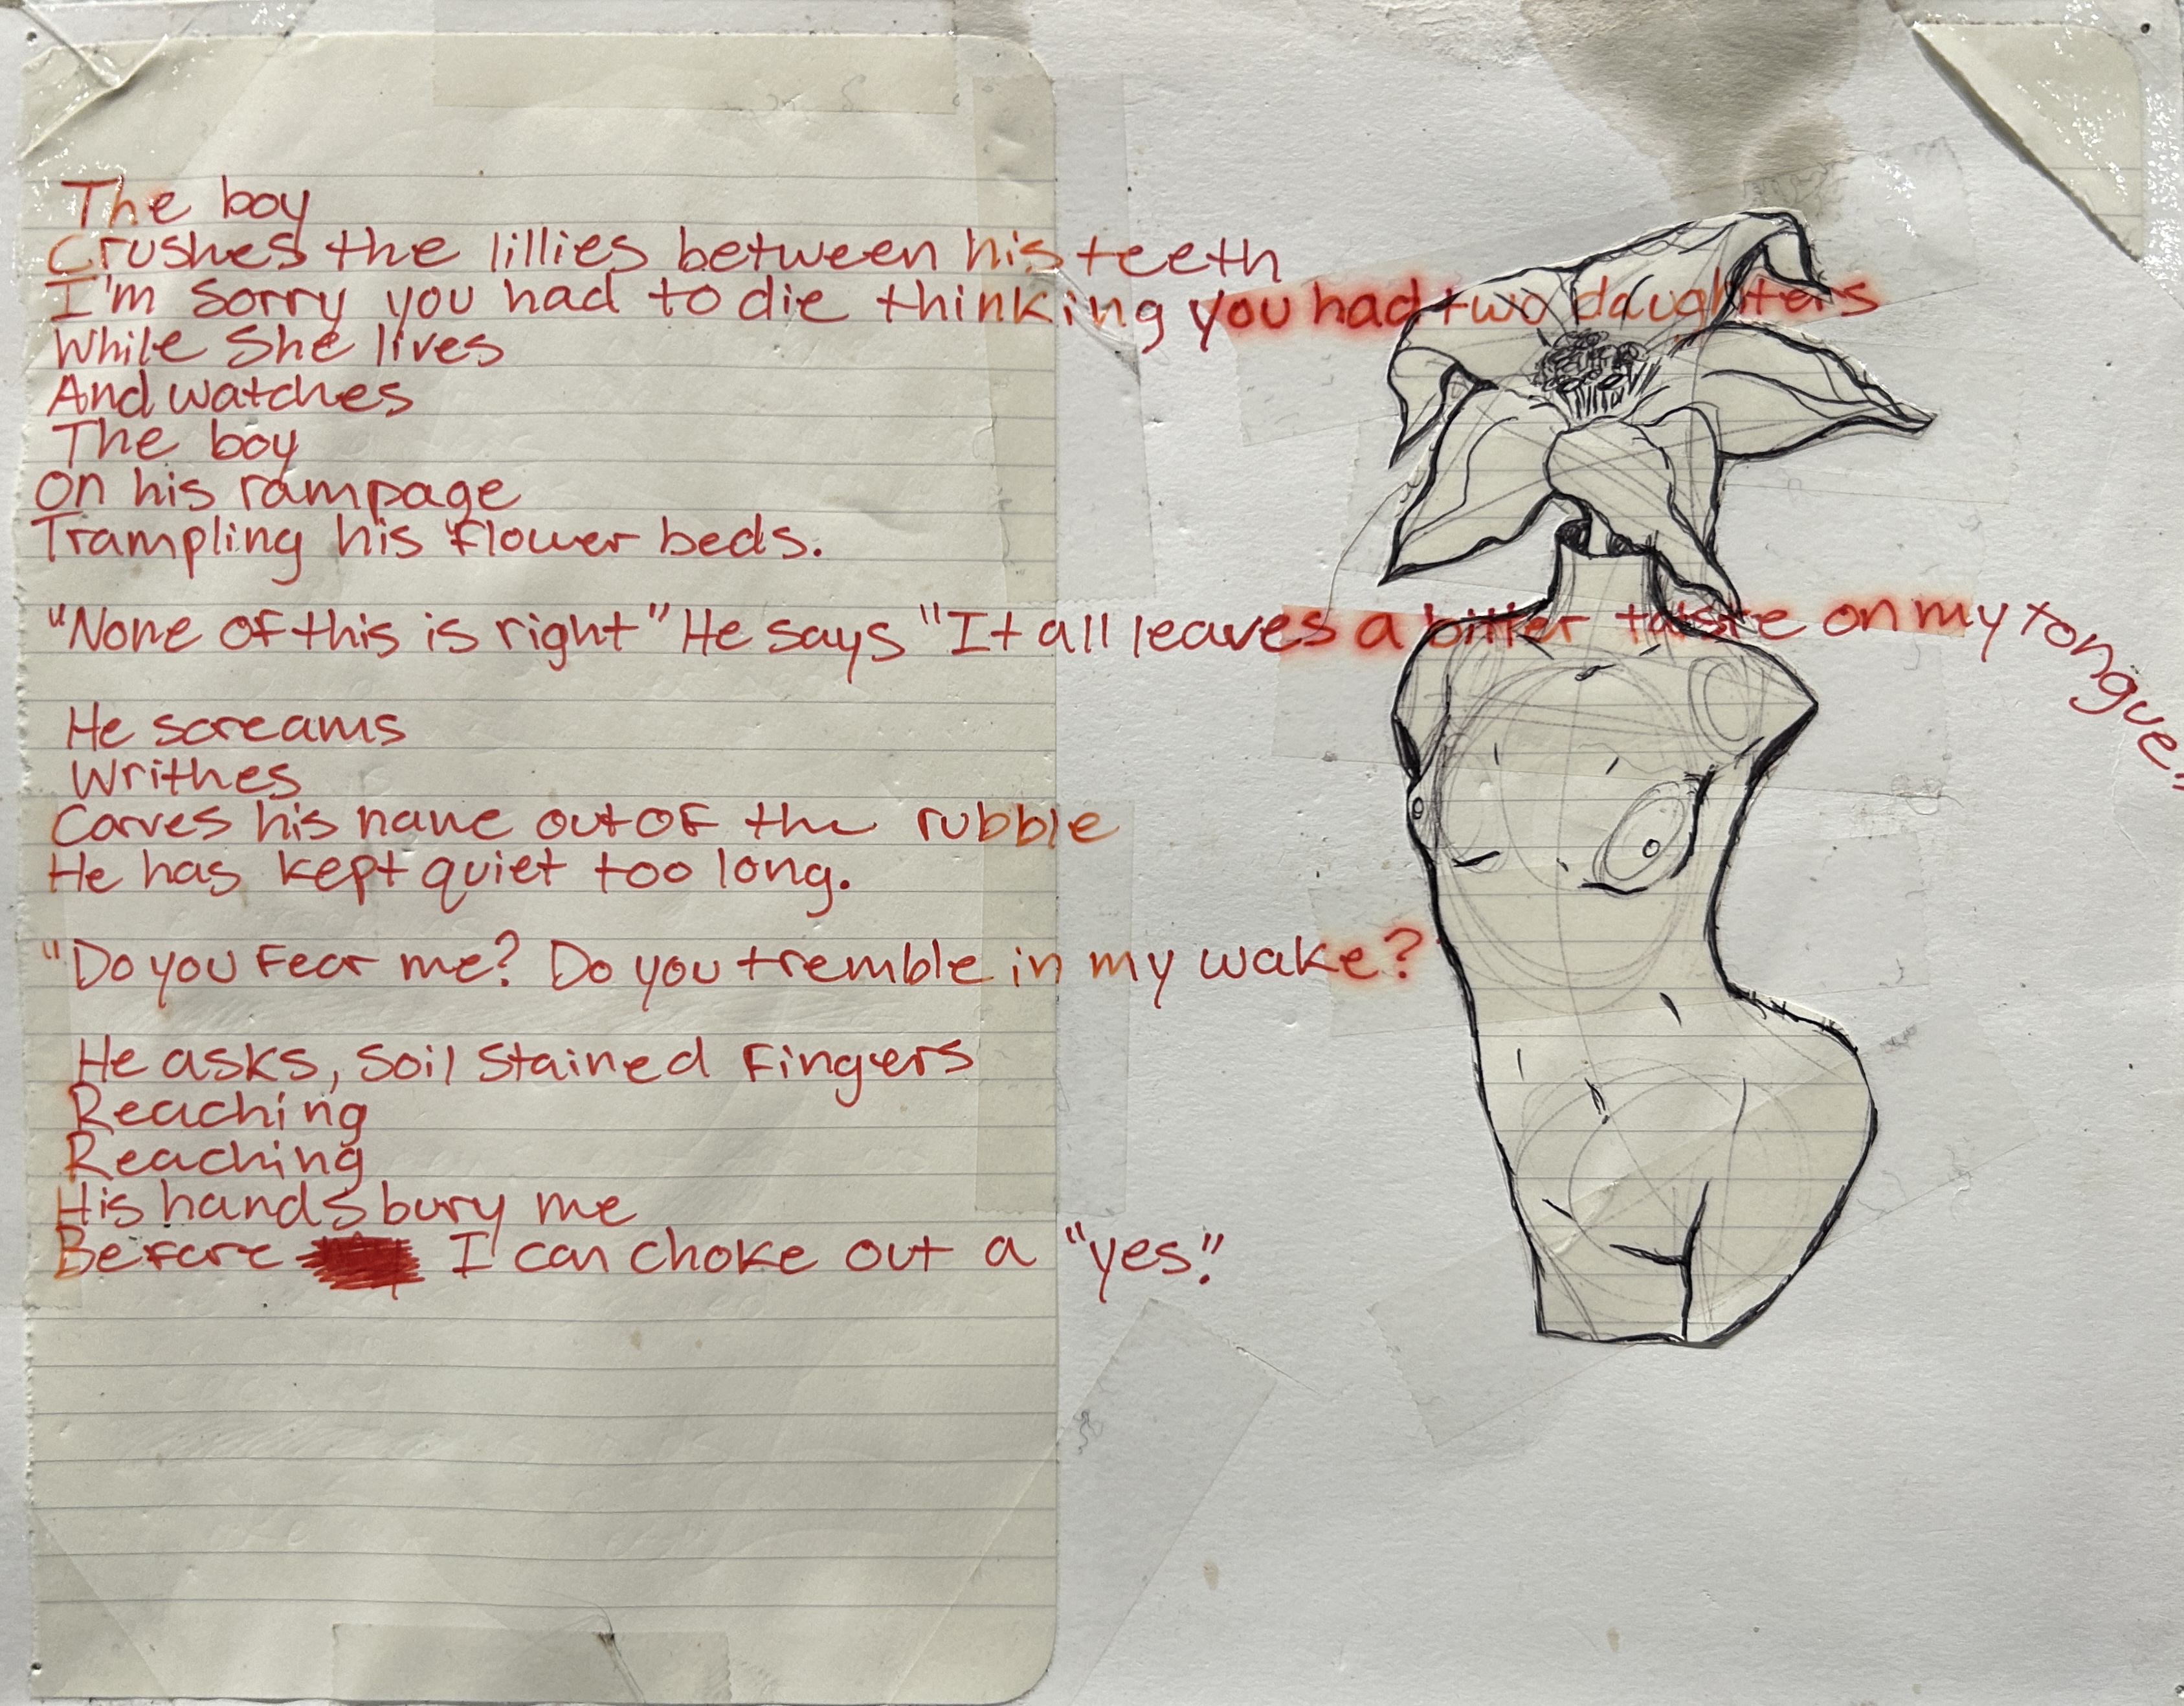 The boy
Crushes the lillies between his teeth
I'm sorry you had to die thinking you had two daughters
While She lives
And watches
The boy
on his rampage
Trampling his flower beds.
"None of this is right" He says "It all leaves a bitter taste on my tongue."
He screams
Writhes
Carves his name out of the rubble
He has kept quiet too long.
"Do you Fear me? Do you tremble in my wake?"
He asks, Soil Stained Fingers
Reaching
Reaching
His hands bury me
Before I can choke out a "yes."